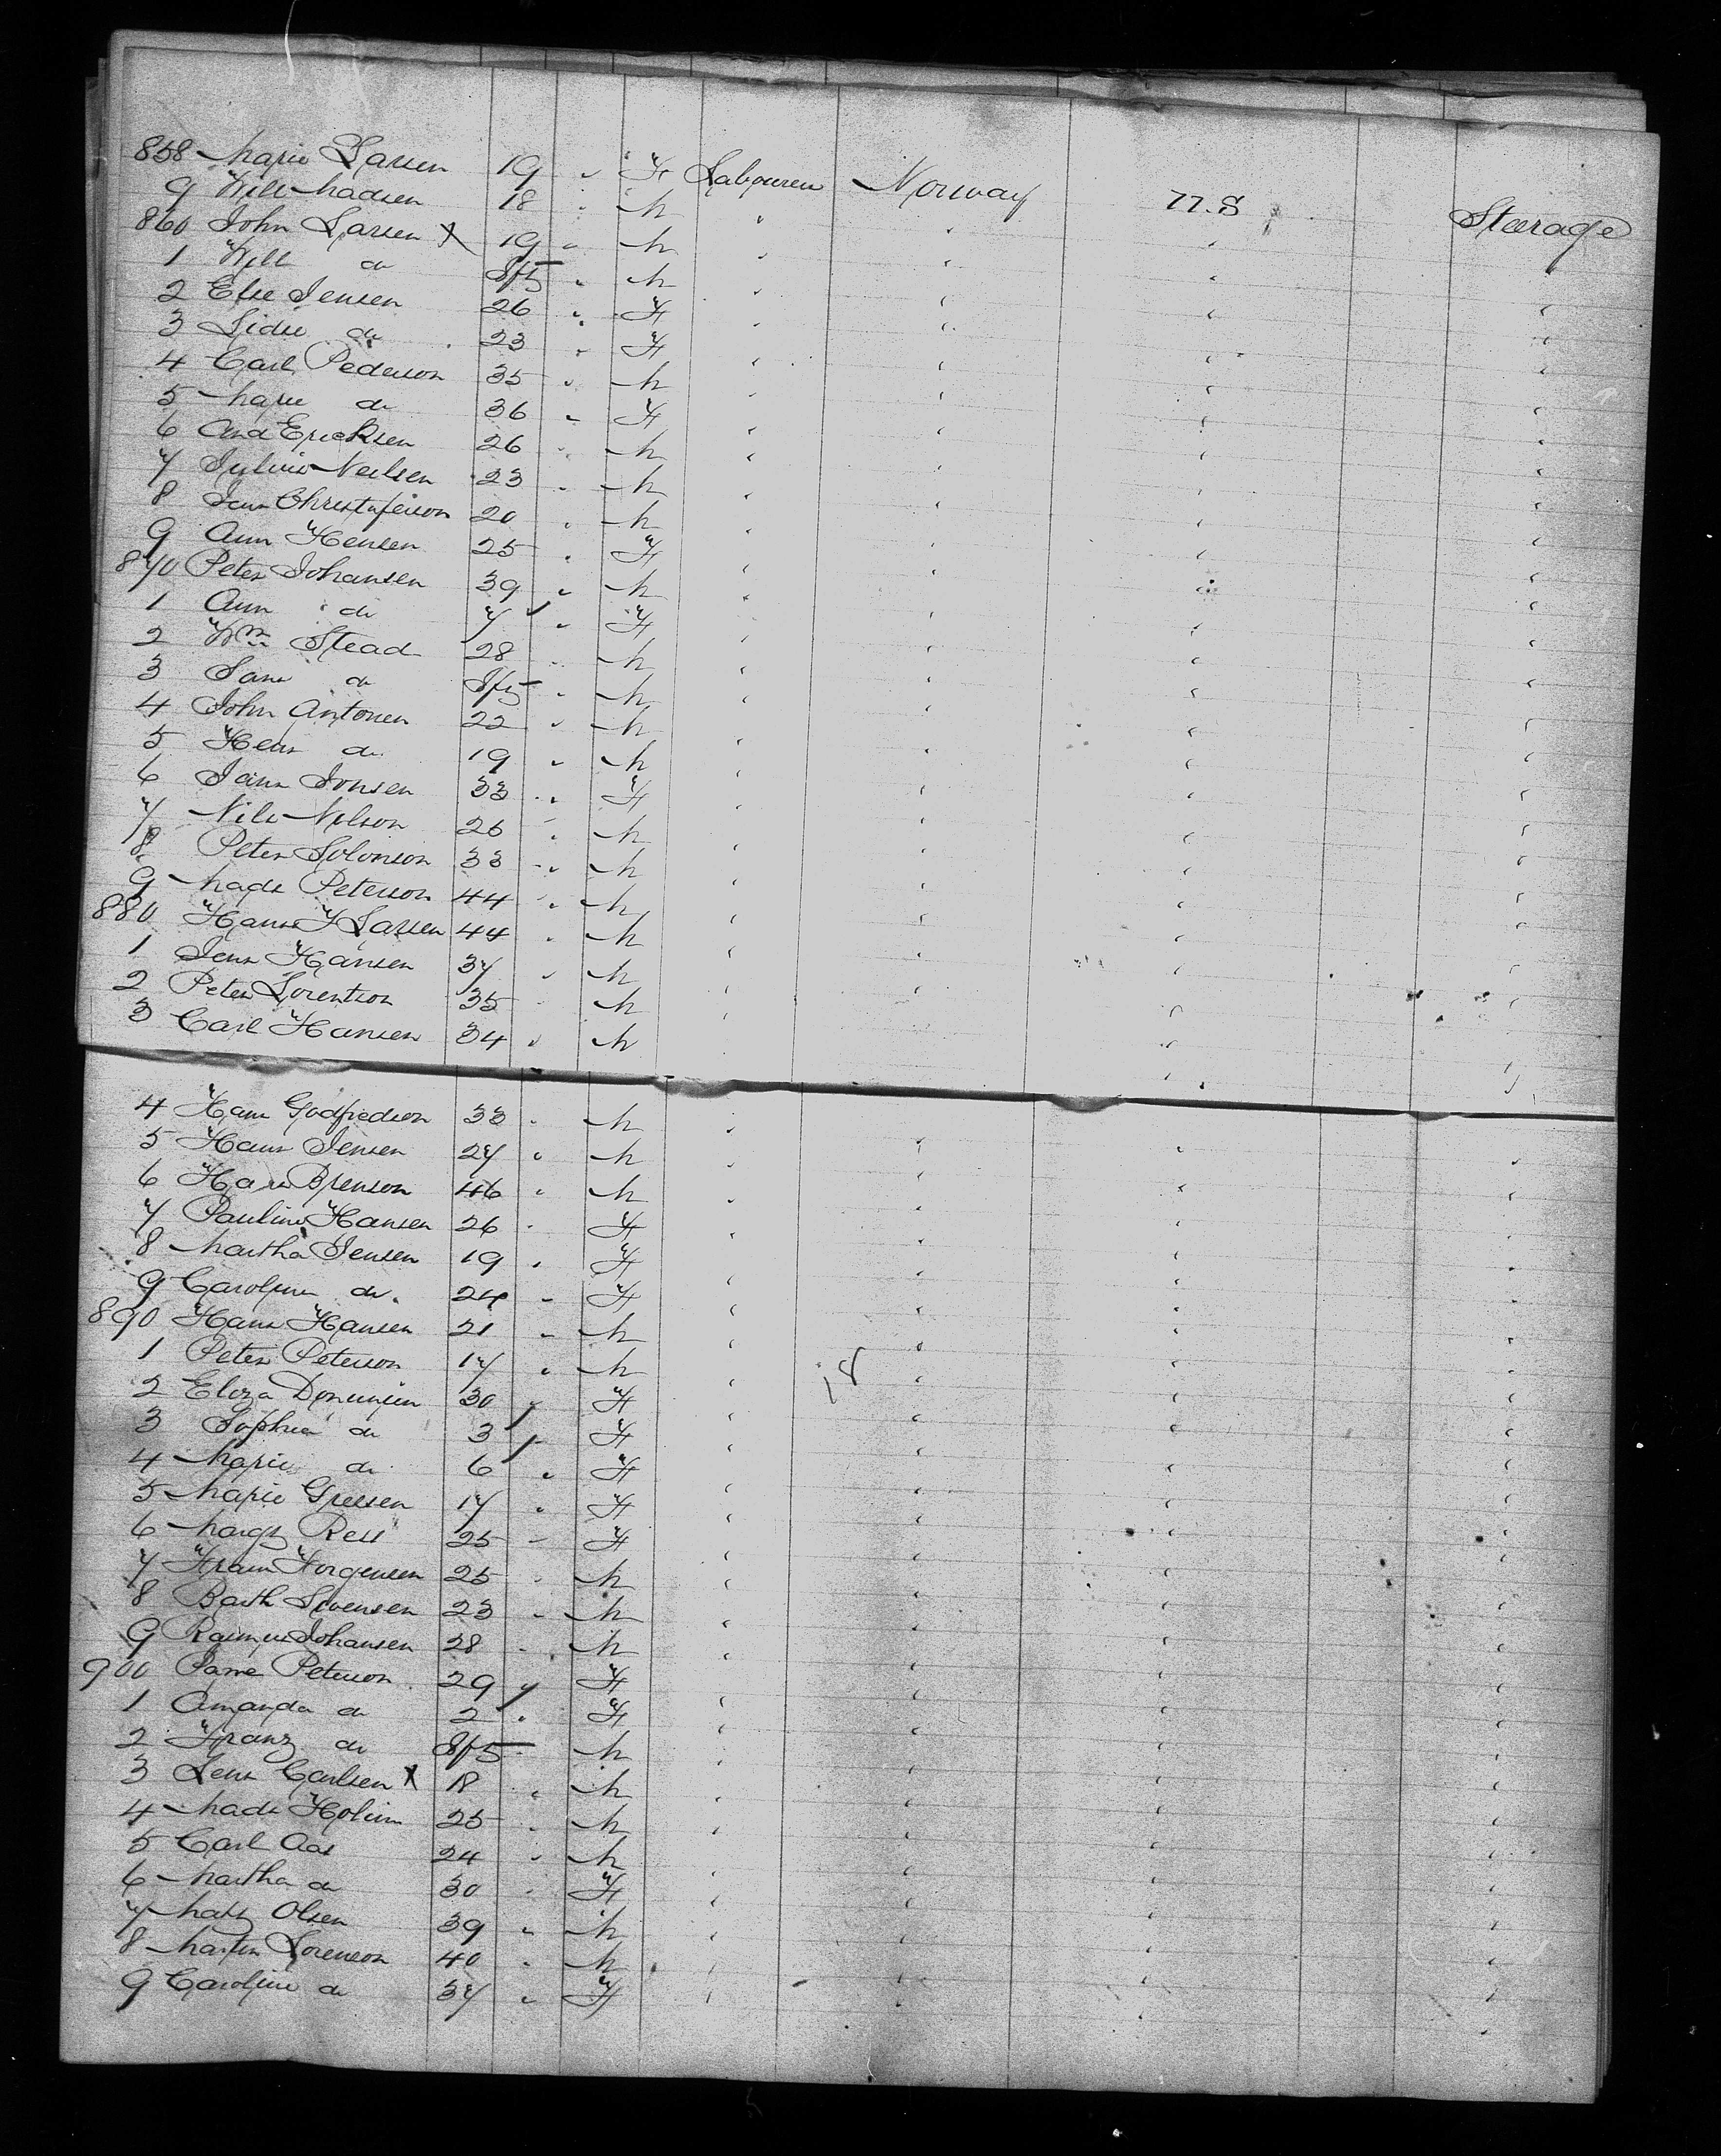 858 Marie Larsen 19 " F Labourers Norway U.S Steerage
9 Will Madsen 18 " M " " " "
860 John Larsen X 19 " M " " " "
1 Will do Inft " M " " " "
2 Else Jensen 26 " F " " " "
3 Sidse do 23 " F " " " "
4 Carl Pederson 35 " M " " " "
5 Marie do 36 " F " " " "
6 And Ericksen 26 " M " " " "
7 Julius Neilsen 23 " M " " " "
8 Jens Christoferson 20 " M " " " "
9 Ann Hensen 25 " F " " " "
870 Peter Johansen 39 " M " " " "
1 Ann do 7 " F " " " "
2 Wm Stead 28 " M " " " "
3 do Inft " M " " " "
4 John Antonen 22 " M " " " "
5 Hens do 19 " M " " " "
6 Jonsen 33 " F " " " "
7 Nils Nelson 26 " M " " " "
8 Peter Solonson 33 " M " " " "
9 Mads Peterson 44 " M " " " "
880 Hans F Larsen 44 " M " " " "
1 Jens Hansen 37 " M " " " "
2 Peter Lorentson 35 " M " " " "
3 Carl Hansen 34 " M " " " "
4 Hans Godfredson 33 " M " " " "
5 Hans Jensen 27 " M " " " "
6 Hans 46 " M " " " "
7 Pauline Hansen 26 " F " " " "
8 Martha Jensen 19 " F " " " "
9 Caroline do 24 " F " " " "
890 Hans Hansen 21 " M " " " "
1 Peter Peterson 17 " M " 18 " " "
2 Eliza 30 " F " " " "
3 Sophia do 3 " F " " " "
4 Marie do 6 " F " " " "
5 Marie 17 " F " " " "
6 Margt 25 " F " " " "
7 25 " M " " " "
8 Barth Svensen 23 " M " " " "
9 Rasmus Johansen 28 " M " " " "
900 Peterson 29 " F " " " "
1 Amanda do 2 " F " " " "
2 Franz do Inft " M " " " "
3 Lens Carlsen X 18 " M " " " "
4 Mads Holm 25 " M " " " "
5 Carl Aas 24 " M " " " "
6 Martha do 30 " F " " " "
7 Mats Olsen 39 " M " " " "
8 Martin Lorenson 40 " M " " " "
9 Caroline do 37 " F " " " "